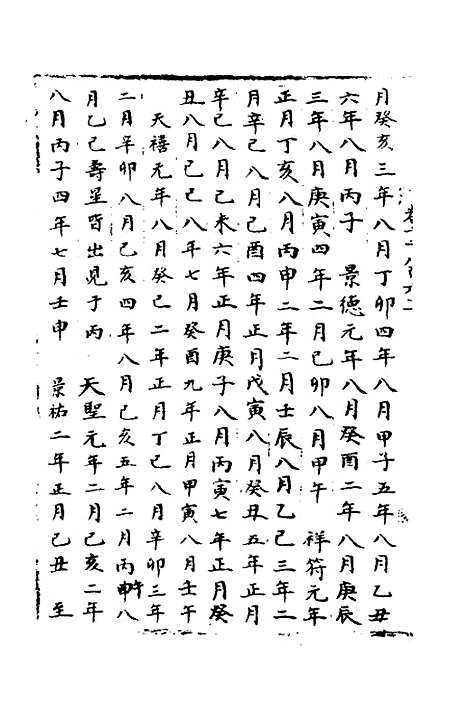 月癸亥三年八月丁卯四年八月甲子五年八月乙丑
六年八月丙子　景德元年八月癸酉二年八月庚辰
三年八月庚寅四年二月己卯八月甲午　祥符元年
正月丁亥八月丙申二年二月壬辰八月乙己三年二
月辛己八月己酉四年正月戊寅八月癸丑五年正月
辛己八月己未六年正月庚子八月丙寅七年正月癸
丑八月己己八年七月癸酉九年正月甲寅八月壬午
天禧元年八月癸己二年正月丁己八月辛卯三年
二月辛卯八月己亥四年八月己亥五年二月丙申八
月乙己壽星皆出見于丙　天聖元年二月己亥二年
八月丙子四年七月壬申　景祐二年正月己丑　至